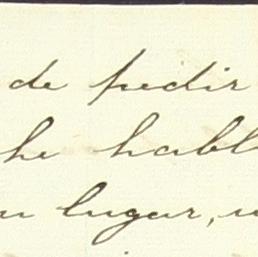 de pedir
he habl
u lugar,